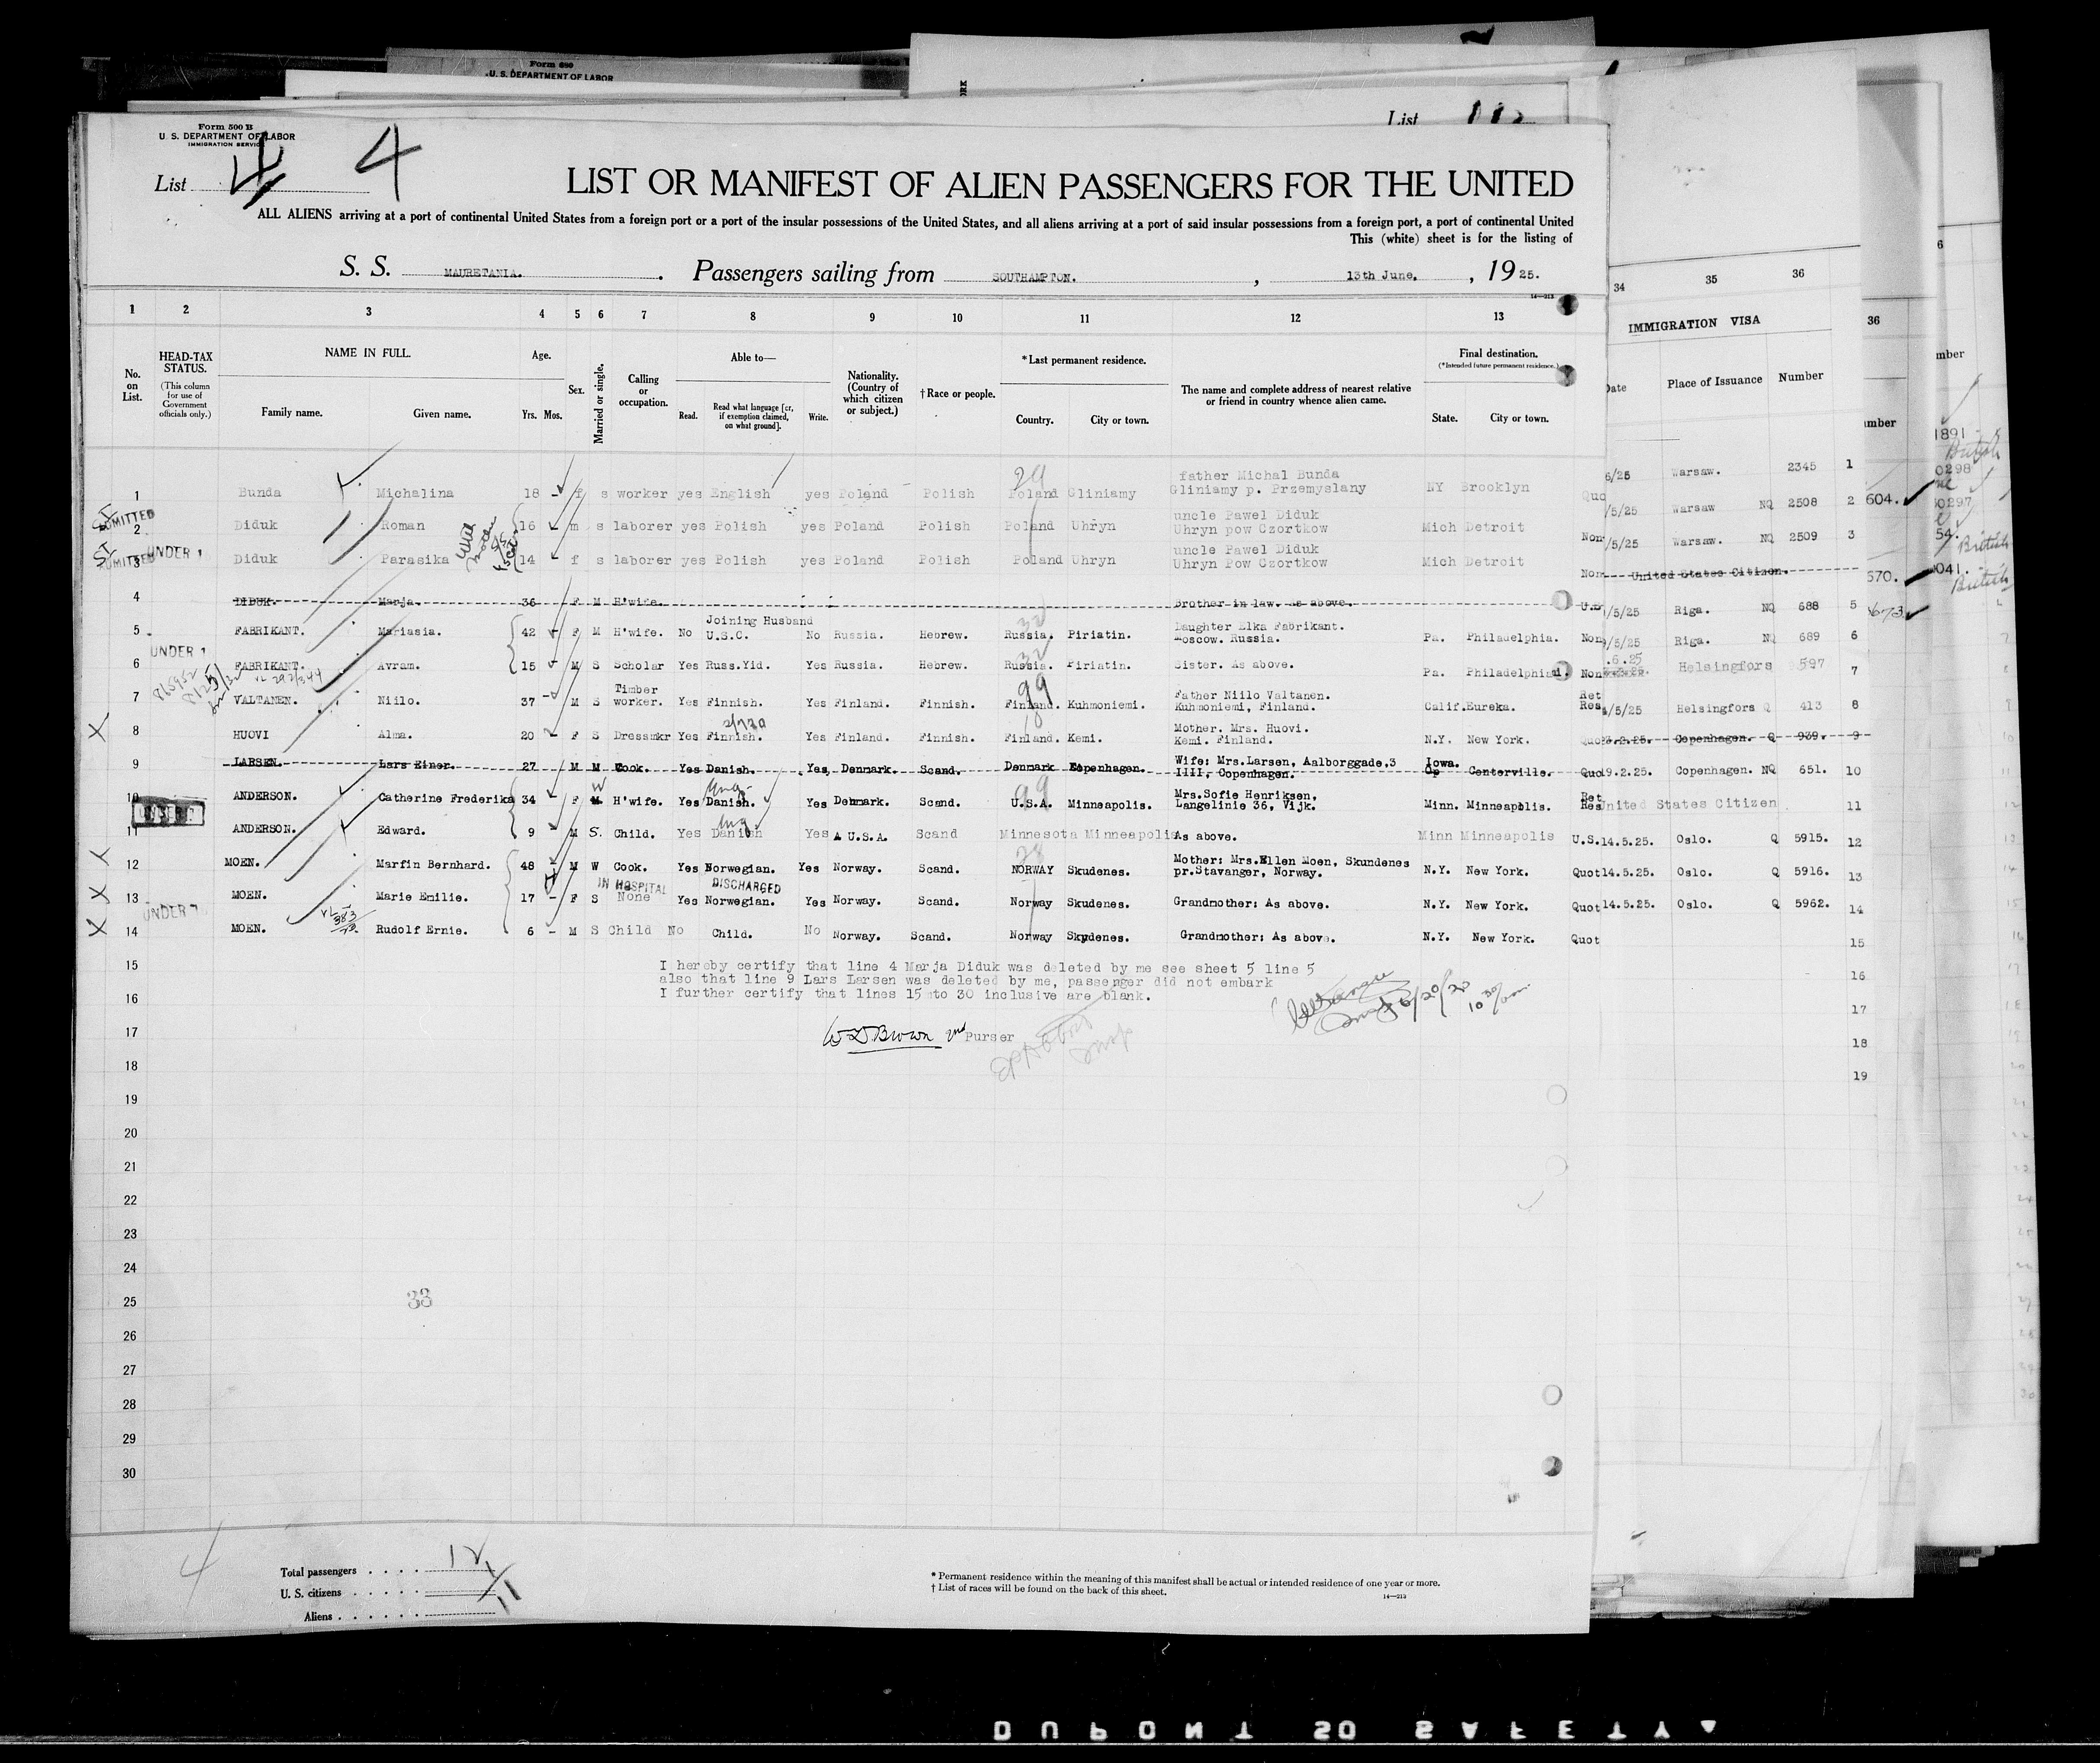 Form 680
U. S. DEPARTMENT OF LABOR
List 112
Form 500 B
U. S. DEPARTMENT OF LABOR
IMMIGRATION SERVICE
List 4 4
LIST OR MANIFEST OF ALIEN PASSENGERS FOR THE UNITED
ALL ALIENS arriving at a port of continental United States from a foreign port or a port of the insular possessions of the United States, and all aliens arriving at a port of said insular possessions from a foreign port, a port of continental United
This (white) sheet is for the listing of
S. S. MAURETANIA. Passengers sailing from SOUTHAMPTON. , 13th June. , 19 25.
14—213
1 2 3 4 5 6 7 8 9 10 11 12 13 34 35 36
IMMIGRATION VISA
No. on List.
HEAD-TAX STATUS.
(This column for use of Government officials only.)
NAME IN FULL.
Family name. Given name.
Age.
Yrs. Mos.
Sex.
Married or single.
Calling or occupation.
Able to—
Read. Read what language [or, if exemption claimed, on what ground]. Write.
Nationality. (Country of which citizen or subject.)
† Race or people.
*Last permanent residence.
Country. City or town.
The name and complete address of nearest relative or friend in country whence alien came.
Final destination.
(*Intended future permanent residence.)
State. City or town.
Date Place of Issuance Number
1 Bunda Michalina 18 f s worker yes English yes Poland Polish Poland Gliniamy father Michal Bunda Gliniamy p. Przemyslany NY Brooklyn Quo 6/25 Warsaw. 2345 1
ADMITTED
2 Diduk Roman 16 m s laborer yes Polish yes Poland Polish Poland Uhryn uncle Pawel Diduk Uhryn pow Czortkow Mich Detroit Non /5/25 Warsaw NQ 2508 2
ADMITTED UNDER 1
3 Diduk Parasika 14 f s laborer yes Polish yes Poland Polish Poland Uhryn uncle Pawel Diduk Uhryn Pow Czortkow Mich Detroit Non /5/25 Warsaw. NQ 2509 3
4 DIDUK. Marja. 36 F M H'wife. Brother in law. as above. U.S. United States Citizen.
5 FABRIKANT. Mariasia. 42 F M H'wife. No Joining Husband U.S.C. No Russia. Hebrew. Russia. Piriatin. Daughter Elka Fabrikant. Moscow. Russia. Pa. Philadelphia. Non /5/25 Riga. NQ 688 5
UNDER 1
6 FABRIKANT. Avram. 15 M S Scholar Yes Russ.Yid. Yes Russia. Hebrew. Russia. Piriatin. Sister. As above. Pa. Philadelphia. Non /5/25 Riga. NQ 689 6
7 VALTANEN. Niilo. 37 M S Timber worker. Yes Finnish. Yes Finland. Finnish. Finland. Kuhmoniemi. Father Niilo Valtanen. Kuhmoniemi, Finland. Calif. Eureka. Ret Res .6.25 Helsingfors 597 7
8 HUOVI Alma. 20 F S Dressmkr Yes Finnish. Yes Finland. Finnish. Finland. Kemi. Mother. Mrs. Huovi. Kemi. Finland. N.Y. New York. Quo /5/25 Helsingfors Q 413 8
9 LARSEN. Lars Einer. 27 M M Cook. Yes Danish. Yes, Denmark. Scand. Denmark Copenhagen. Wife: Mrs.Larsen, Aalborggade,3 IIII, Copenhagen. Iowa. Centerville. Quo 3.2.25. Copenhagen. Q 939. 9
10 ANDERSON. Catherine Frederika 34 F M. W H'wife. Yes Danish. Eng. Yes Denmark. Scand. U.S.A. Minneapolis. Mrs.Sofie Henriksen, Langelinie 36, Vijk. Minn. Minneapolis. Ret Res 19.2.25. Copenhagen. NQ 651. 10
11 ANDERSON. Edward. 9 M S. Child. Yes Danish Eng. Yes U.S.A. Scand Minnesota Minneapolis As above. Minn Minneapolis U.S. United States Citizen 11
12 MOEN. Marfin Bernhard. 48 M W Cook. Yes Norwegian. Yes Norway. Scand. NORWAY Skudenes. Mother: Mrs.Ellen Moen, Skundenes pr.Stavanger, Norway. N.Y. New York. Quot 14.5.25. Oslo. Q 5915. 12
IN HOSPITAL DISCHARGED
13 MOEN. Marie Emilie. 17 - F S None Yes Norwegian. Yes Norway. Scand. Norway Skudenes. Grandmother: As above. N.Y. New York. Quot 14.5.25. Oslo. Q 5916. 13
UNDER
14 MOEN. Rudolf Ernie. 6 - M S Child No Child. No Norway. Scand. Norway Skudenes. Grandmother: As above. N.Y. New York. Quot 14.5.25. Oslo. Q 5962. 14
15 I hereby certify that line 4 Marja Diduk was deleted by me see sheet 5 line 5
also that line 9 Lars Larsen was deleted by me, passenger did not embark
16 I further certify that lines 15 to 30 inclusive are blank.
17 W D Brown 2nd Purser
18
19
20
21
22
23
24
25 33
26
27
28
29
30
4
Total passengers 12
U. S. citizens 1
Aliens 11
* Permanent residence within the meaning of this manifest shall be actual or intended residence of one year or more.
† List of races will be found on the back of this sheet.
14—213
DUPONT 50 SAFETY